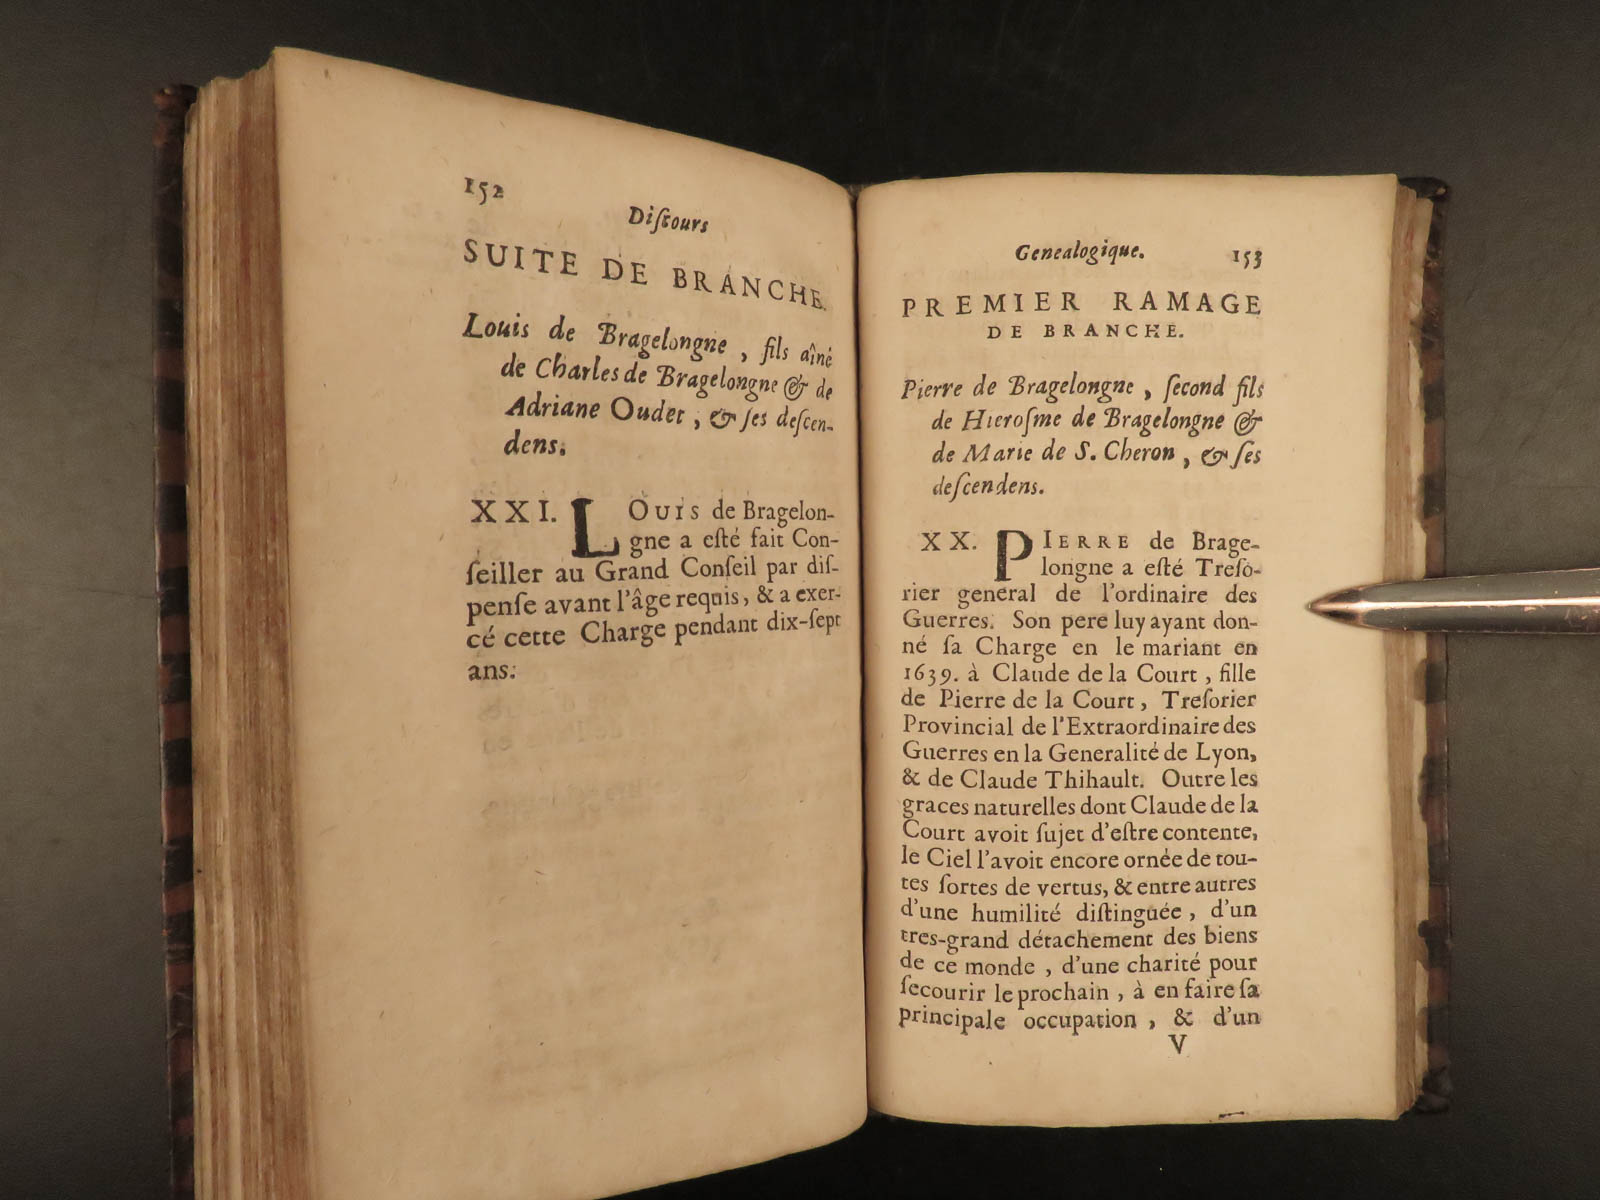 152
Diſcours
SUITE DE BRANCHE.
Louis de Bragelongne, fils aîné
de Charles de Bragelongne & de
Adriane Oudet, & ſes deſcen-
dens.
XXI. LOUIS de Bragelon-
gne a eſté fait Con-
ſeiller au Grand Conſeil par diſ-
penſe avant l'âge requis, & a exer-
cé cette Charge pendant dix-ſept
ans.
Genealogique. 153
PREMIER RAMAGE
DE BRANCHE.
Pierre de Bragelongne, ſecond fils
de Hieroſme de Bragelongne &
de Marie de S. Cheron, & ſes
deſcendens.
XX. PIERRE de Brage-
longne a eſté Treſo-
rier general de l'ordinaire des
Guerres. Son pere luy ayant don-
né ſa Charge en le mariant en
1639. à Claude de la Court, fille
de Pierre de la Court, Treſorier
Provincial de l'Extraordinaire des
Guerres en la Generalité de Lyon,
& de Claude Thihault. Outre les
graces naturelles dont Claude de la
Court avoit ſujet d'eſtre contente,
le Ciel l'avoit encore ornée de tou-
tes ſortes de vertus, & entre autres
d'une humilité diſtinguée, d'un
tres-grand détachement des biens
de ce monde, d'une charité pour
ſecourir le prochain, à en faire ſa
principale occupation, & d'un
V